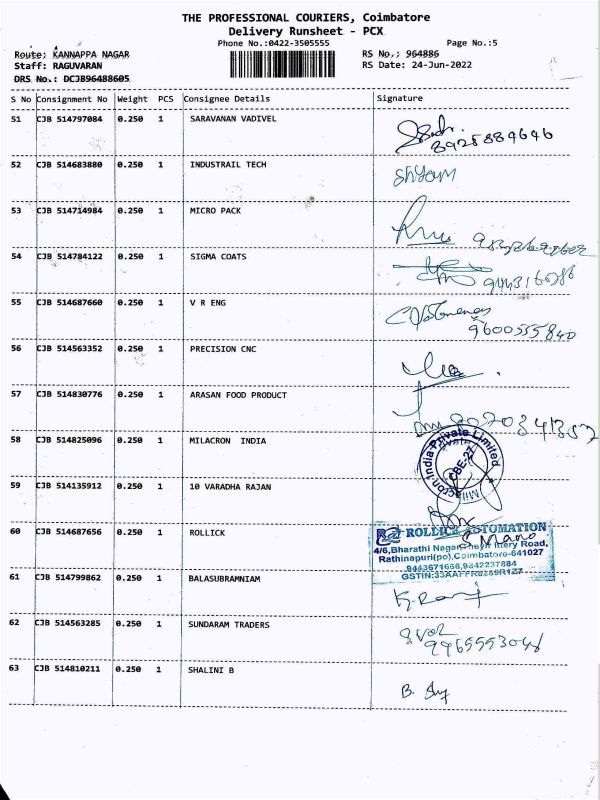 THE PROFESSIONAL COURIERS, Coimbatore
Delivery Runsheet - PCX
Phone No.:0422-3505555
Page No.:5
Route: KANNAPPA NAGAR
RS No.: 964886
Staff: RAGUVARAN
RS Date: 24-Jun-2022
DRS No.: DCJB96488605
S No Consignment No Weight PCS Consignee Details Signature
51 CJB 514797084 0.250 1 SARAVANAN VADIVEL
8925884646
52 CJB 514683880 0.250 1 INDUSTRAIL TECH
Shyam
53 CJB 514714984 0.250 1 MICRO PACK
54 CJB 514784122 0.250 1 SIGMA COATS
55 CJB 514687660 0.250 1 V R ENG
9600555840
56 CJB 514563352 0.250 1 PRECISION CNC
57 CJB 514830776 0.250 1 ARASAN FOOD PRODUCT
58 CJB 514825096 0.250 1 MILACRON INDIA
India Private Limited
CBE-27
59 CJB 514135912 0.250 1 10 VARADHA RAJAN
60 CJB 514687656 0.250 1 ROLLICK
ROLLICK AUTOMATION
Mano
4/6,Bharathi Nagar, Road,
Rathinapuri(po),Coimbatore-641027
9443671666,9842237884
61 CJB 514799862 0.250 1 BALASUBRAMNIAM
62 CJB 514563285 0.250 1 SUNDARAM TRADERS
63 CJB 514810211 0.250 1 SHALINI B